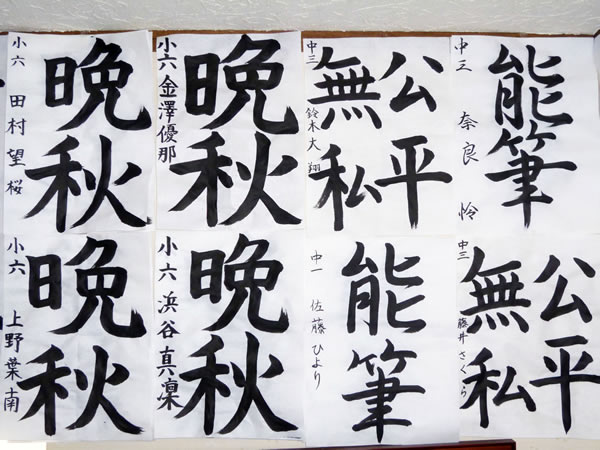 晩秋
小六 田村望桜
晩秋
小六 金澤優那
公平
無私
中三 鈴木大翔
能筆
中三 奈良怜
晩秋
小六 上野葉南
晩秋
小六 浜谷真凜
能筆
中一 佐藤ひより
公平
無私
中三 藤井さくら